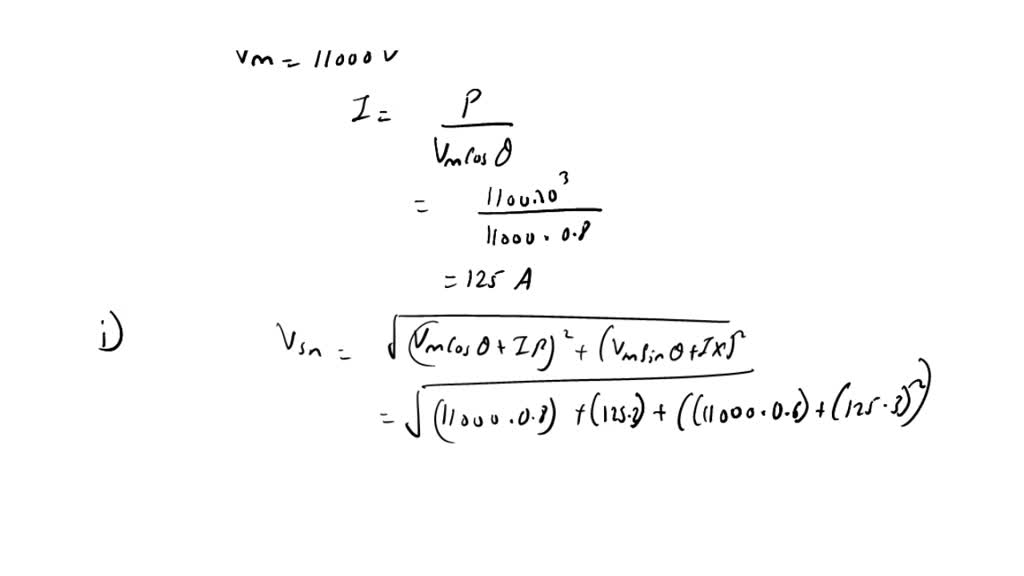 Vm = 11000 V
I = P / Vm cos θ
= 1100.10^3 / 11000 . 0.8
= 125 A
i) Vsn = √((Vm cos θ + IR)^2 + (Vm sin θ + IX)^2
= √((11000 . 0.8) + (125.2) + ((11000 . 0.6) + (125 . 3)^2)